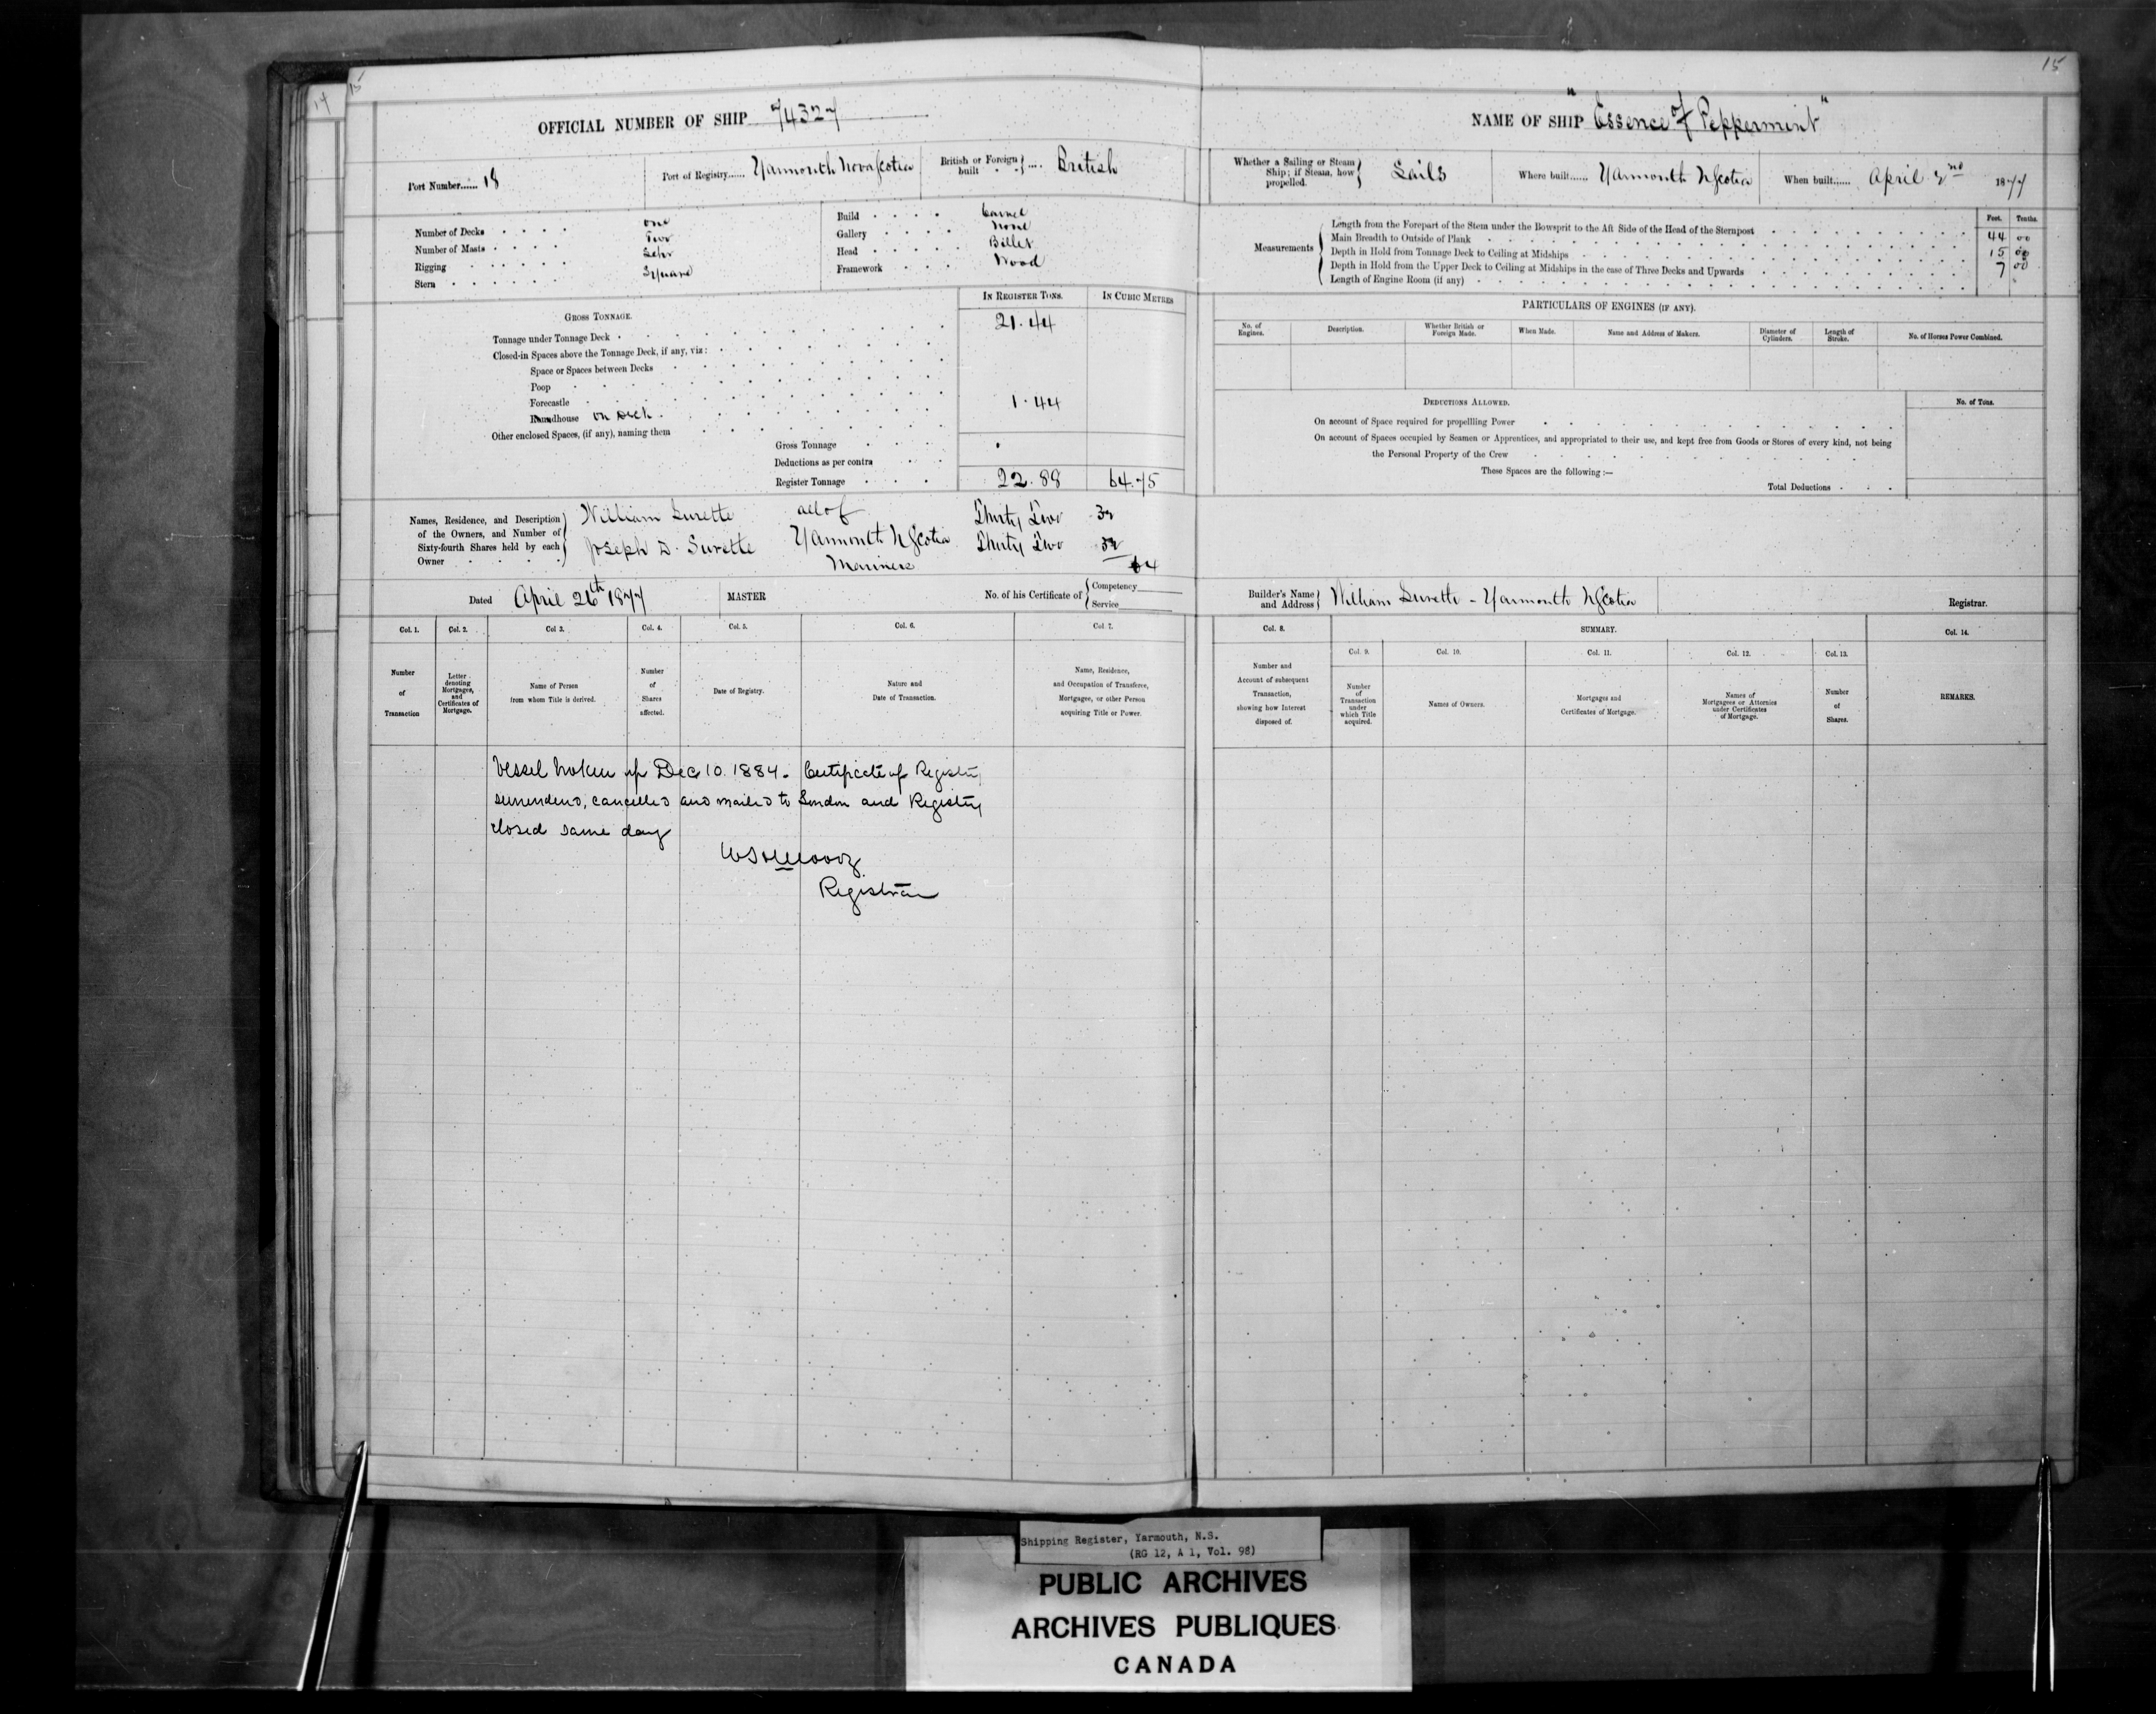 14
15
15
OFFICIAL NUMBER OF SHIP 74327
NAME OF SHIP "Essence of Peppermint"
Port Number...... 18
Port of Registry...... Yarmouth Nova Scotia
British or Foreign built .... British
Whether a Sailing or Steam Ship; if Steam, how propelled. Sails
Where built...... Yarmouth N Scotia
When built...... April 2nd 1877
Number of Decks one
Number of Masts Two
Rigging Schr
Stern Square
Build Carvel
Gallery None
Head Billet
Framework Wood
Measurements
Feet. Tenths.
Length from the Forepart of the Stem under the Bowsprit to the Aft Side of the Head of the Sternpost 44 00
Main Breadth to Outside of Plank 15 00
Depth in Hold from Tonnage Deck to Ceiling at Midships 7 00
Depth in Hold from the Upper Deck to Ceiling at Midships in the case of Three Decks and Upwards
Length of Engine Room (if any)
GROSS TONNAGE.
IN REGISTER TONS. IN CUBIC METRES
Tonnage under Tonnage Deck 21.44
Closed-in Spaces above the Tonnage Deck, if any, viz:
Space or Spaces between Decks
Poop
Forecastle
Roundhouse on Deck 1.44
Other enclosed Spaces, (if any), naming them
Gross Tonnage
Deductions as per contra
Register Tonnage 22.88 64.75
PARTICULARS OF ENGINES (IF ANY).
No. of Engines. Description. Whether British or Foreign Made. When Made. Name and Address of Makers. Diameter of Cylinders. Length of Stroke. No. of Horses Power Combined.
DEDUCTIONS ALLOWED. No. of Tons.
On account of Space required for propellling Power
On account of Spaces occupied by Seamen or Apprentices, and appropriated to their use, and kept free from Goods or Stores of every kind, not being
the Personal Property of the Crew
These Spaces are the following :—
Total Deductions
Names, Residence, and Description of the Owners, and Number of Sixty-fourth Shares held by each Owner
William Surette all of Thirty Two 32
Joseph D. Surette Yarmouth N Scotia Thirty Two 32
Mariners 64
Dated April 26th 1877
MASTER
No. of his Certificate of Competency Service
Builder's Name and Address William Surette - Yarmouth N Scotia
Registrar.
Col. 1. Col. 2. Col 3. Col. 4. Col. 5. Col. 6. Col. 7. Col. 8. SUMMARY. Col. 14.
Col. 9. Col. 10. Col. 11. Col. 12. Col. 13.
Number of Transaction
Letter denoting Mortgages, and Certificates of Mortgage.
Name of Person from whom Title is derived.
Number of Shares affected.
Date of Registry.
Nature and Date of Transaction.
Name, Residence, and Occupation of Transferee, Mortgagee, or other Person acquiring Title or Power.
Number and Account of subsequent Transaction, showing how Interest disposed of.
Number of Transaction under which Title acquired.
Names of Owners.
Mortgages and Certificates of Mortgage.
Names of Mortgagees or Attornies under Certificates of Mortgage.
Number of Shares.
REMARKS.
Vessel broken up Dec 10. 1884. Certificate of Registry
surrendered, cancelled and mailed to London and Registry
closed same day
Registrar
Shipping Register, Yarmouth, N.S.
(RG 12, A 1, Vol. 98)
PUBLIC ARCHIVES
ARCHIVES PUBLIQUES
CANADA